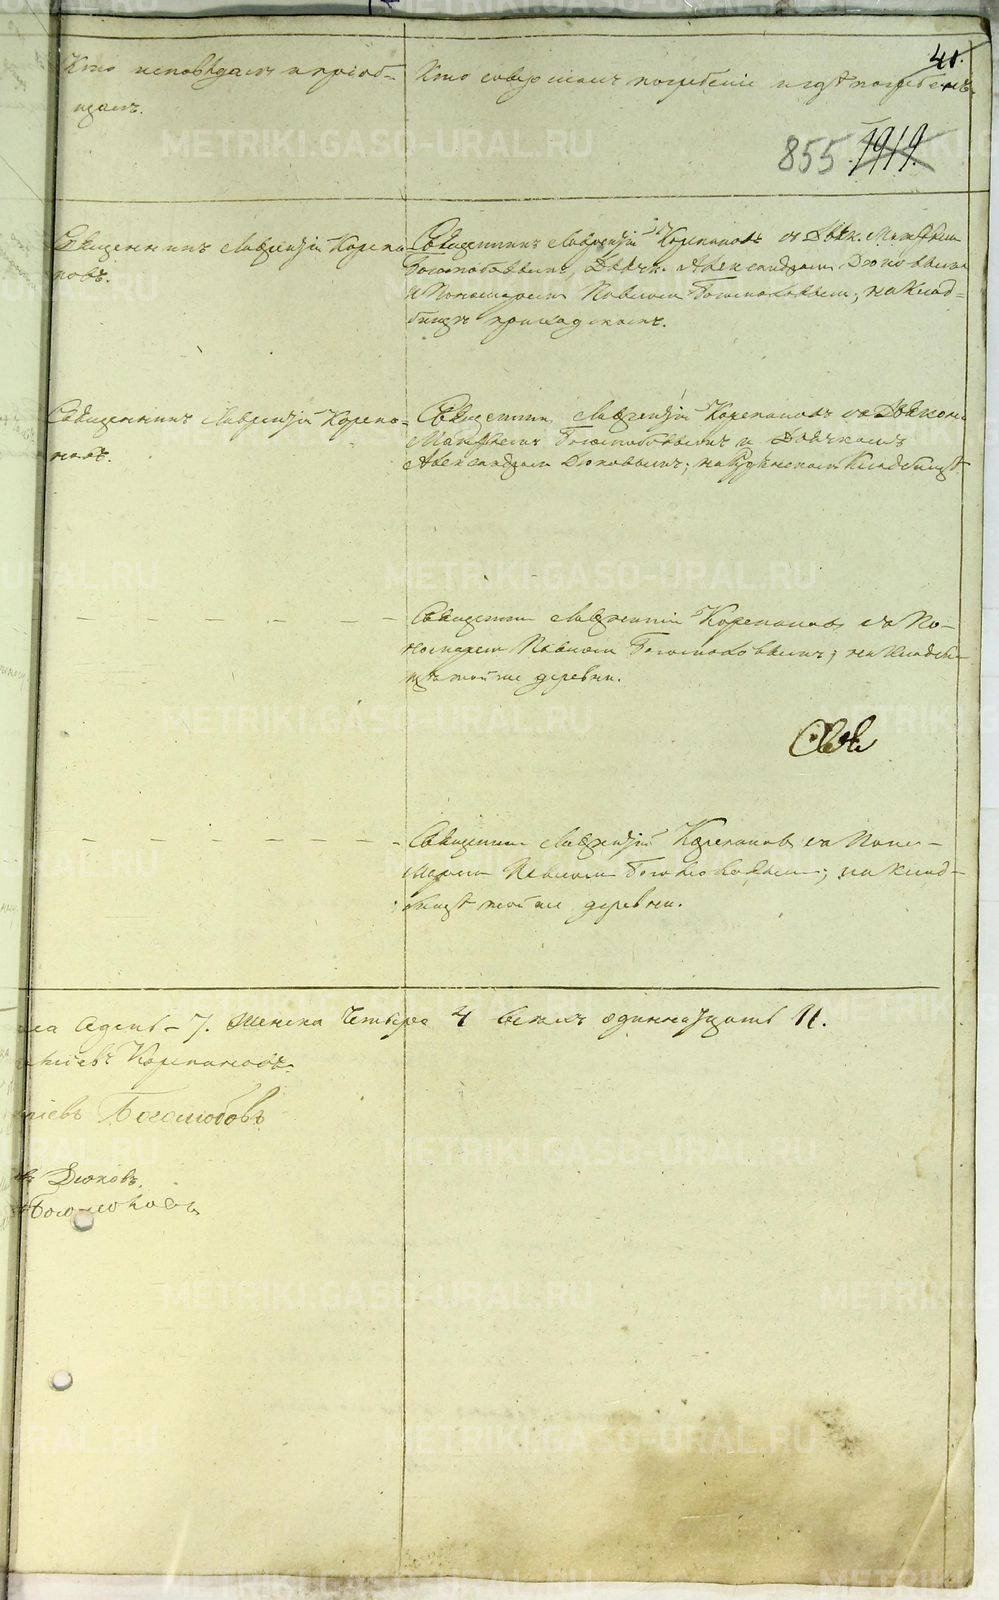 41.
Кто исповѣдалъ и пріоб-
щалъ.
Кто совершалъ погребеніе и гдѣ погребенъ.
855. 1919.
Священникъ Лаврентій Корепа-
новъ.
Священникъ Лаврентій Корепановъ съ Діак. Матѳіем
Боголюбовымъ, Дьячк. Александром Дюковымъ
и Пономаремъ Павломъ Боголюбовымъ, на клад-
бищѣ приходскомъ.
Священникъ Лаврентій Корепа-
новъ.
Священникъ Лаврентій Корепановъ съ Діакон.
Матѳіемъ Боголюбовымъ и Дьячкомъ
Александром Дюковымъ; на кладбищѣ
Священникъ Лаврентій Корепановъ съ По-
номарем Павлом Боголюбовымъ; на кладби-
щѣ той же деревни.
Священникъ Лаврентій Корепановъ съ Поно-
маремъ Павломъ Боголюбовымъ; на клад-
бищѣ той же деревни.
ла седмь - 7. женска четыре 4 всѣхъ одиннадцать 11.
Корепановъ.
Боголюбовъ
Дюковъ.
Боголюбовъ
METRIKI.GASO-URAL.RU